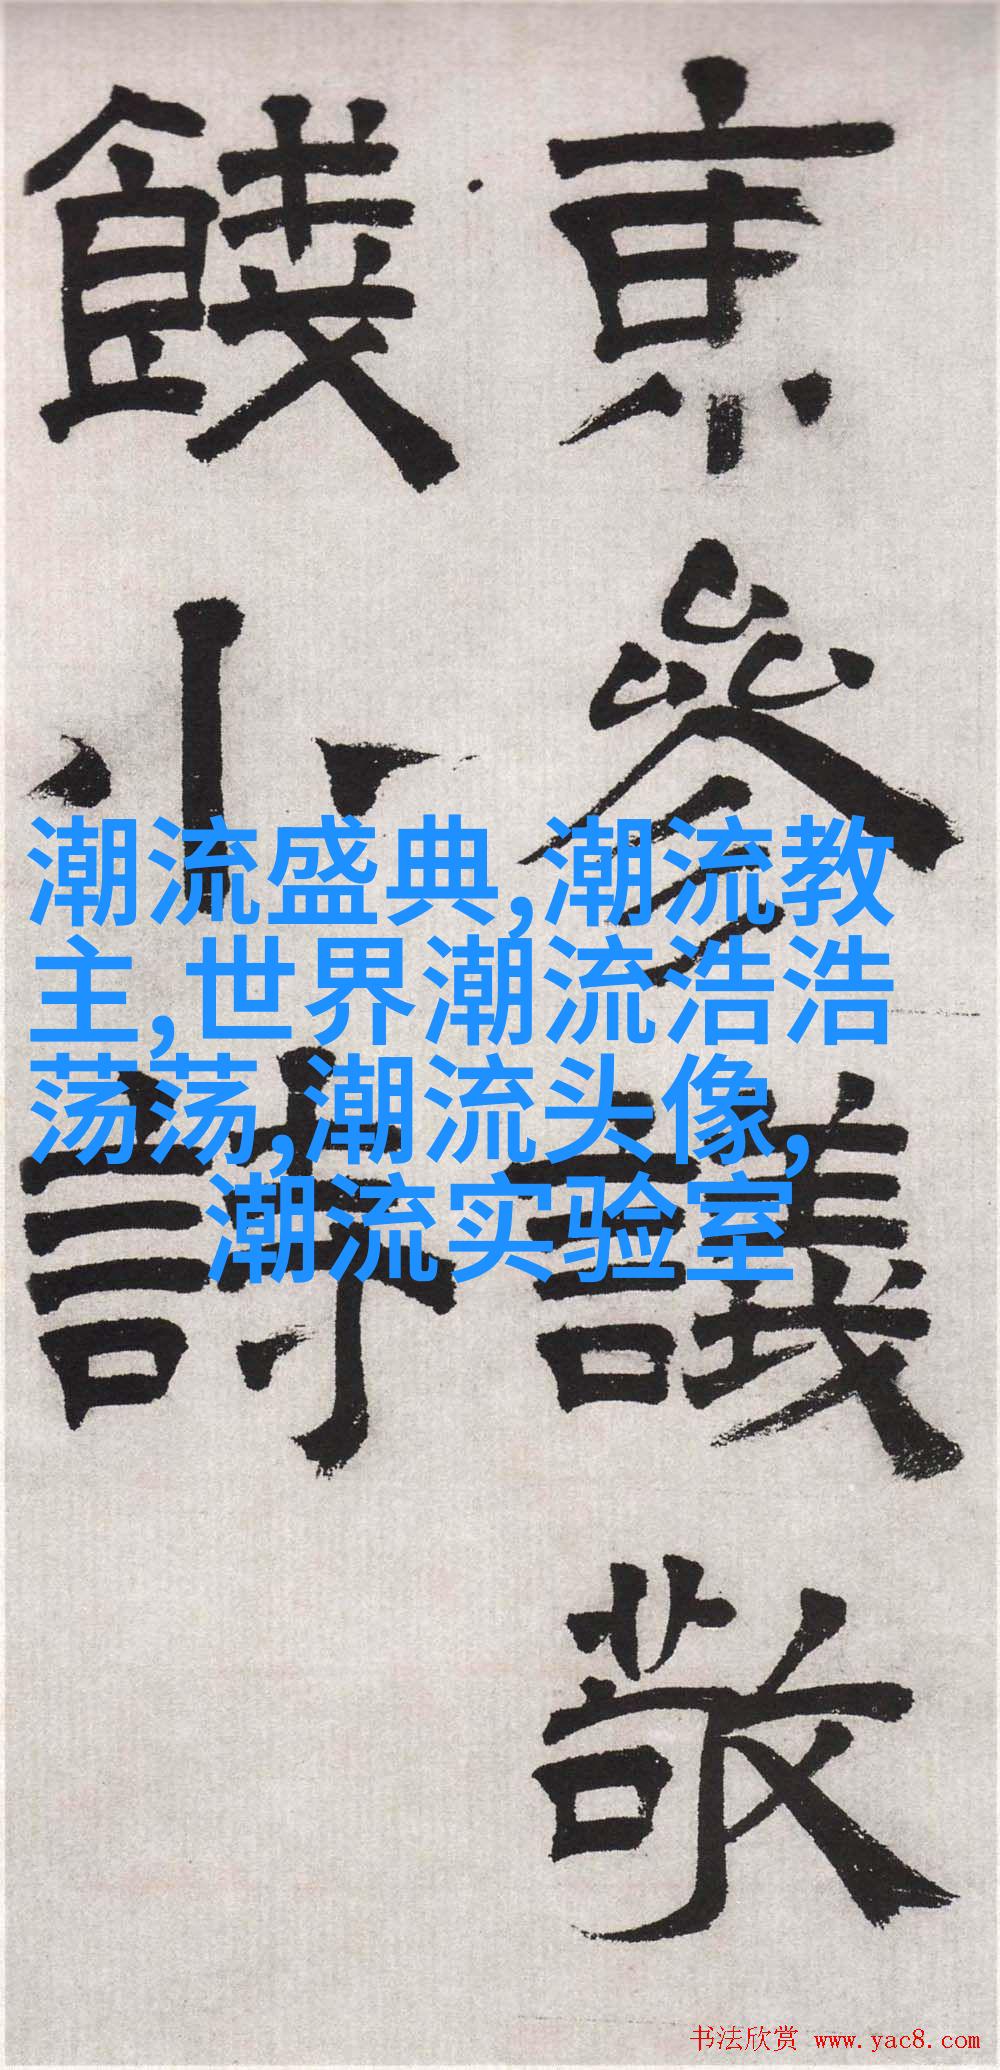 京參議敬
餞小詩
潮流盛典,潮流教
主,世界潮流浩浩
荡荡,潮流头像,
潮流实验室
书法欣赏 www.yac8.com